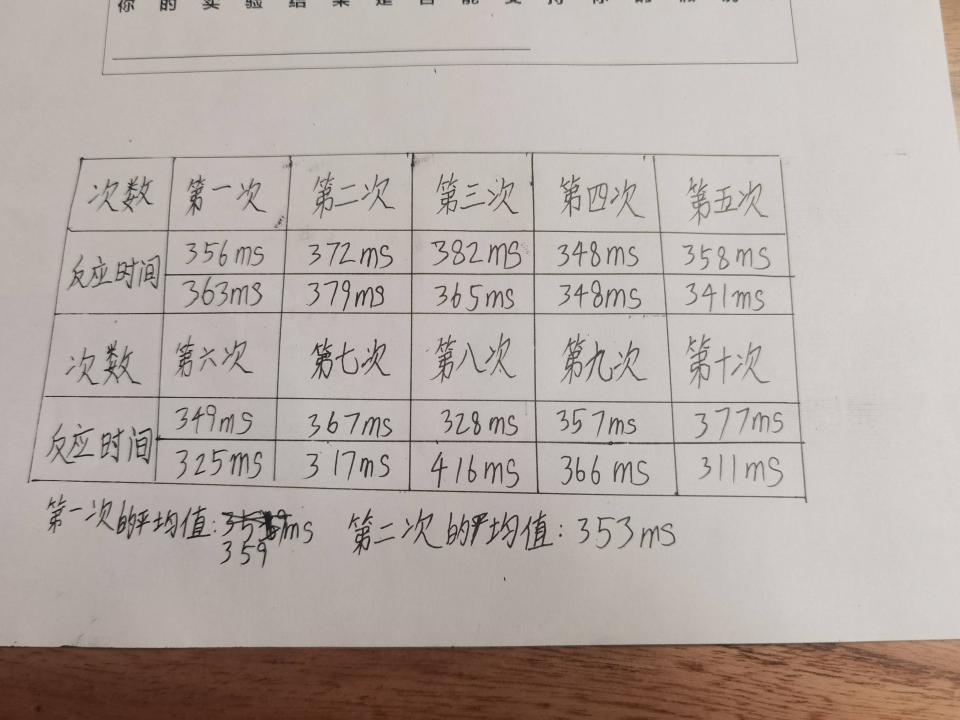 你的实验结果是否能支持你的假设
次数 第一次 第二次 第三次 第四次 第五次
反应时间 356ms 372ms 382ms 348ms 358ms
363ms 379ms 365ms 348ms 341ms
次数 第六次 第七次 第八次 第九次 第十次
反应时间 349ms 367ms 328ms 357ms 377ms
325ms 317ms 416ms 366ms 311ms
第一次的平均值: ms 第二次的平均值: 353ms
359